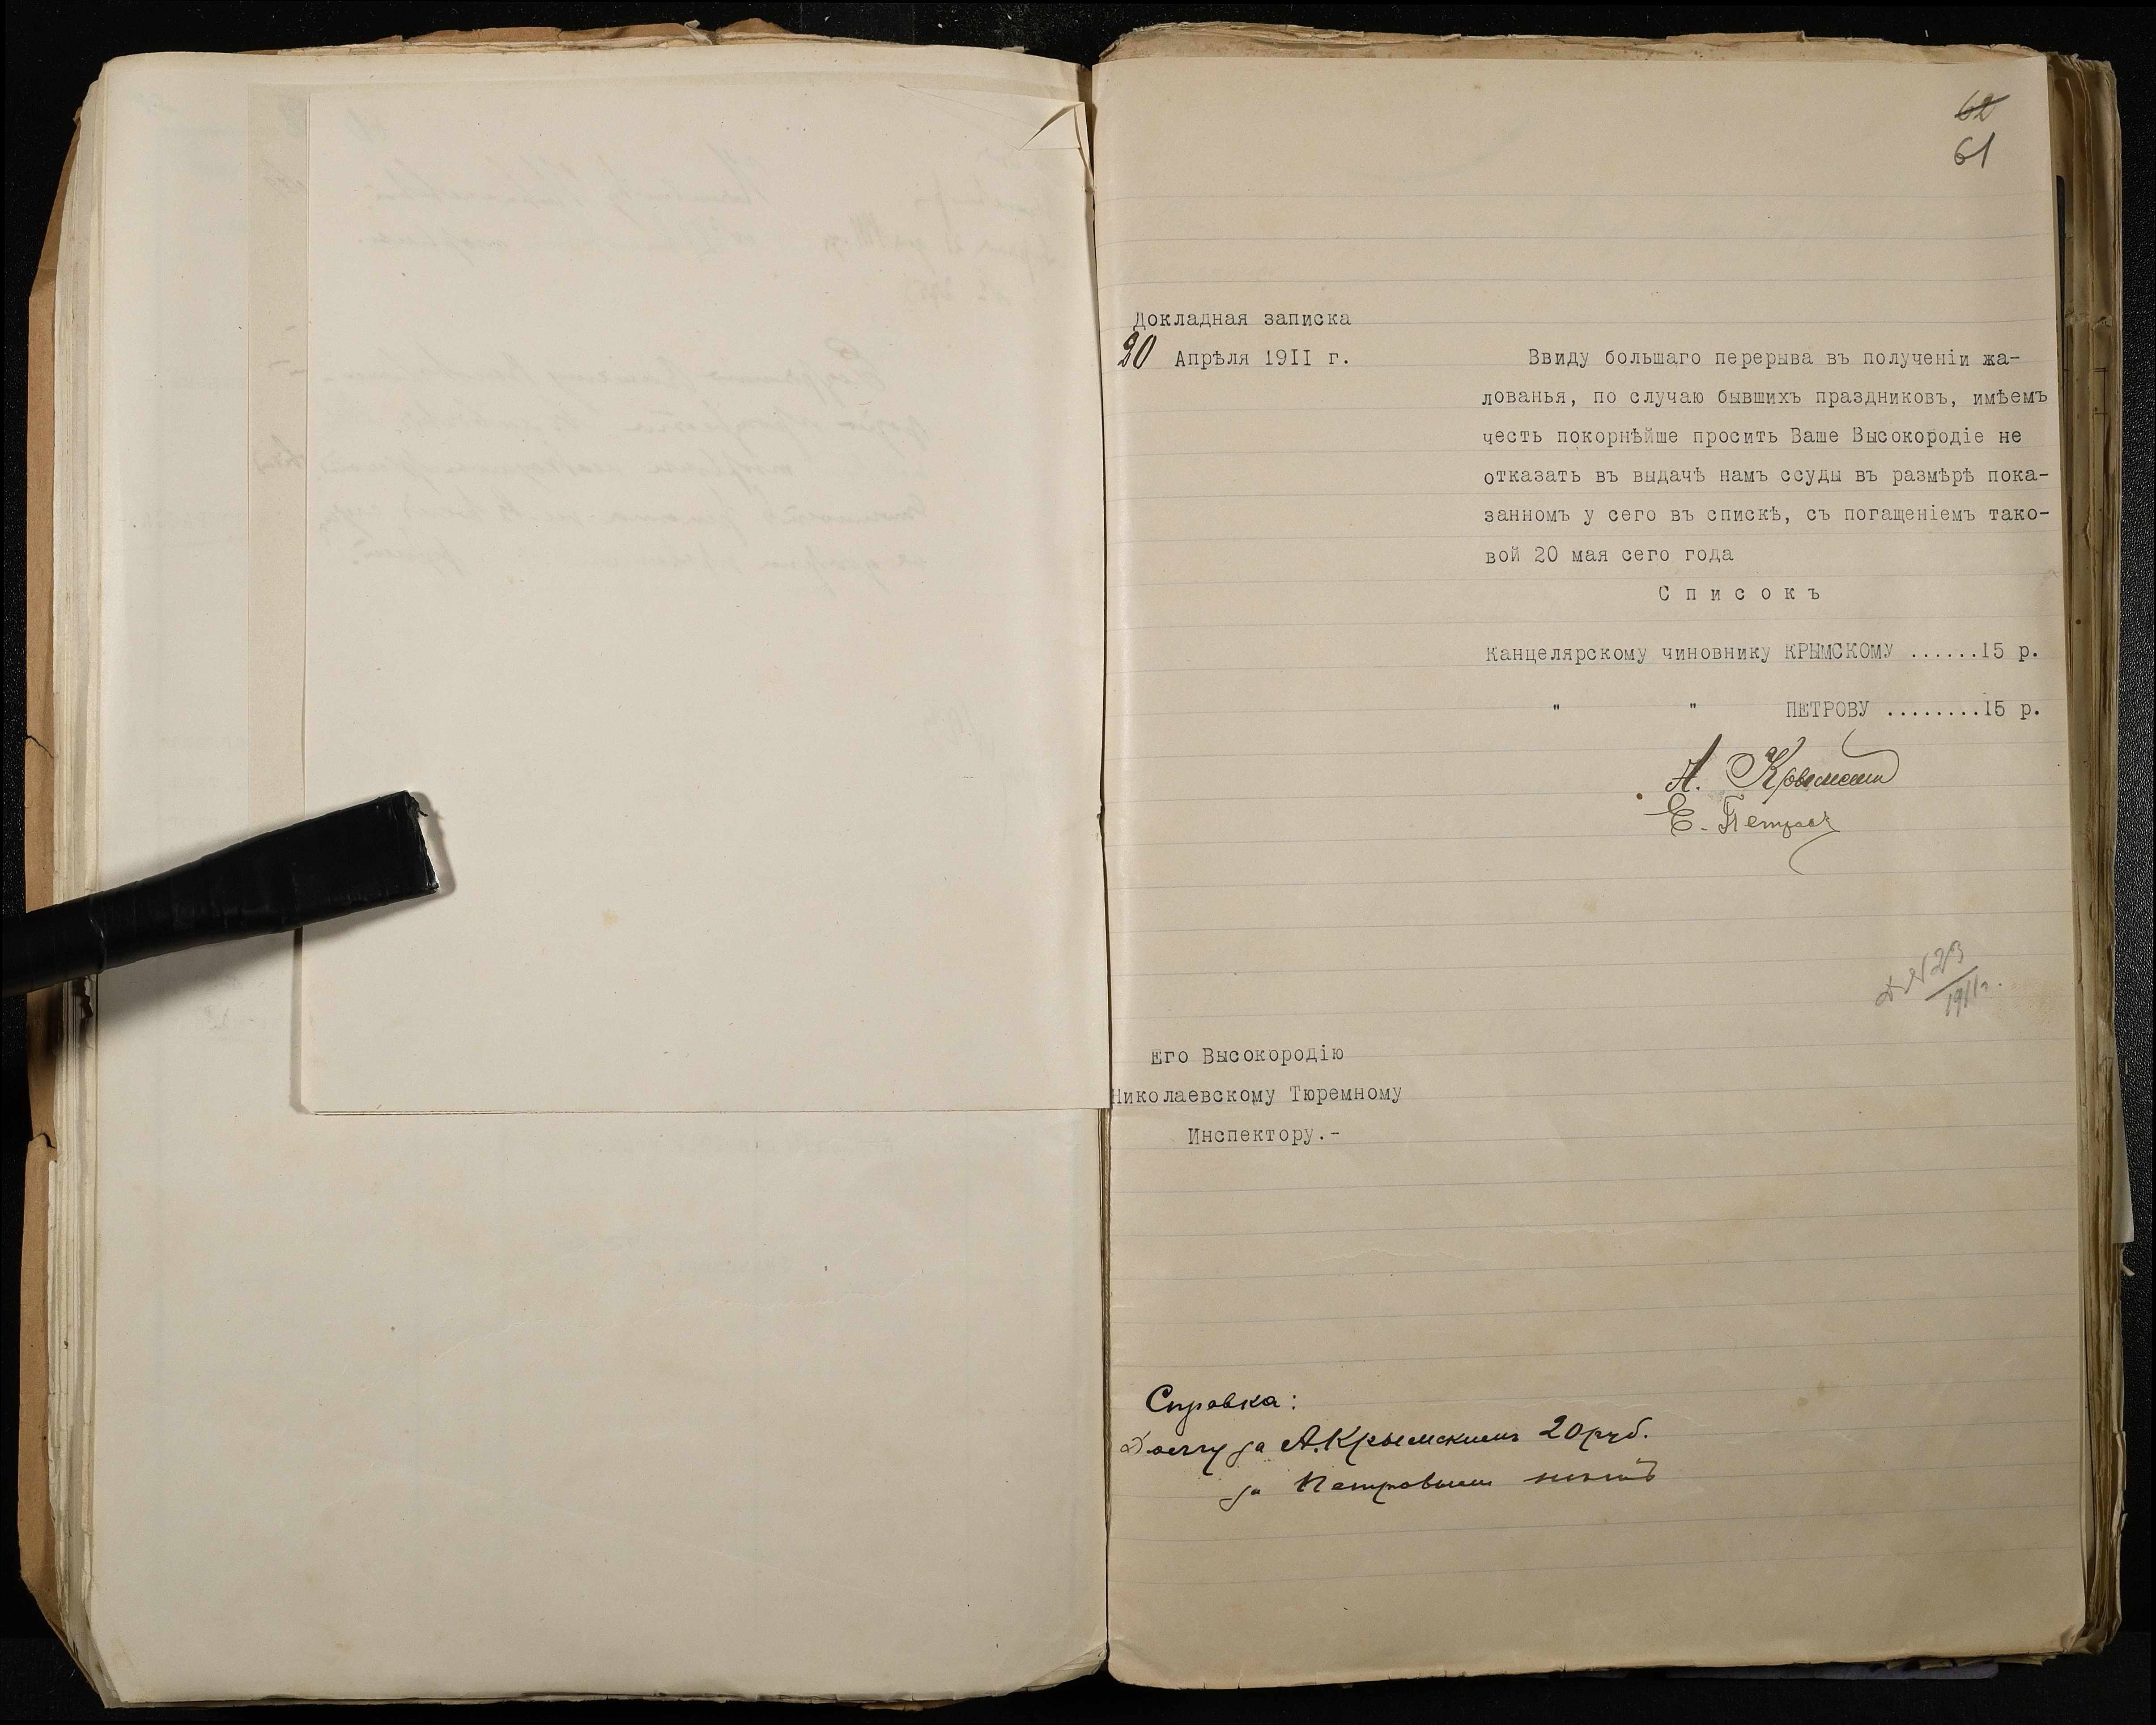 62
61
Докладная записка
20 Апрѣля 1911 г.
Ввиду большаго перерыва въ полученіи жа-
лованья, по случаю бывшихъ праздниковъ, имѣемъ
честь покорнѣйше просить Ваше Высокородіе не
отказать въ выдачѣ намъ ссуды въ размѣрѣ пока-
занномъ у сего въ спискѣ, съ погащеніемъ тако-
вой 20 мая сего года
С п и с о к ъ
Канцелярскому чиновнику КРЫМСКОМУ ......15 р.
" " ПЕТРОВУ ........15 р.
А. Крымскій
Е. Петровъ
Д № 23
1911 г.
Его Высокородію
Николаевскому Тюремному
Инспектору.-
Справка:
Долгу за А. Крымскимъ 20 руб.
за Петровымъ нѣтъ